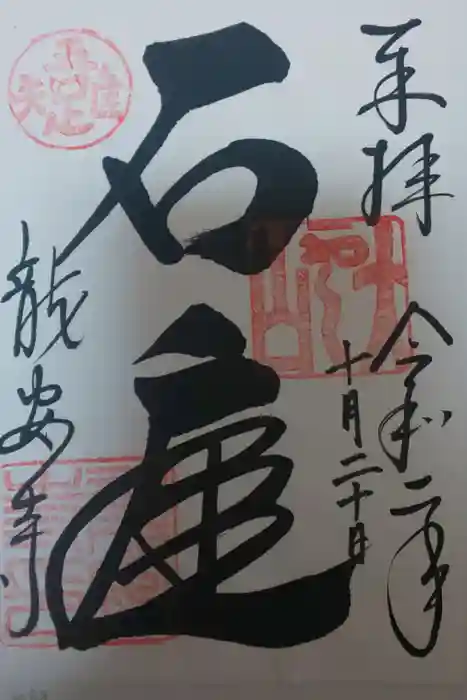 奉拝
令和二年
十月二十日
石庭
龍安寺
吾唯足知